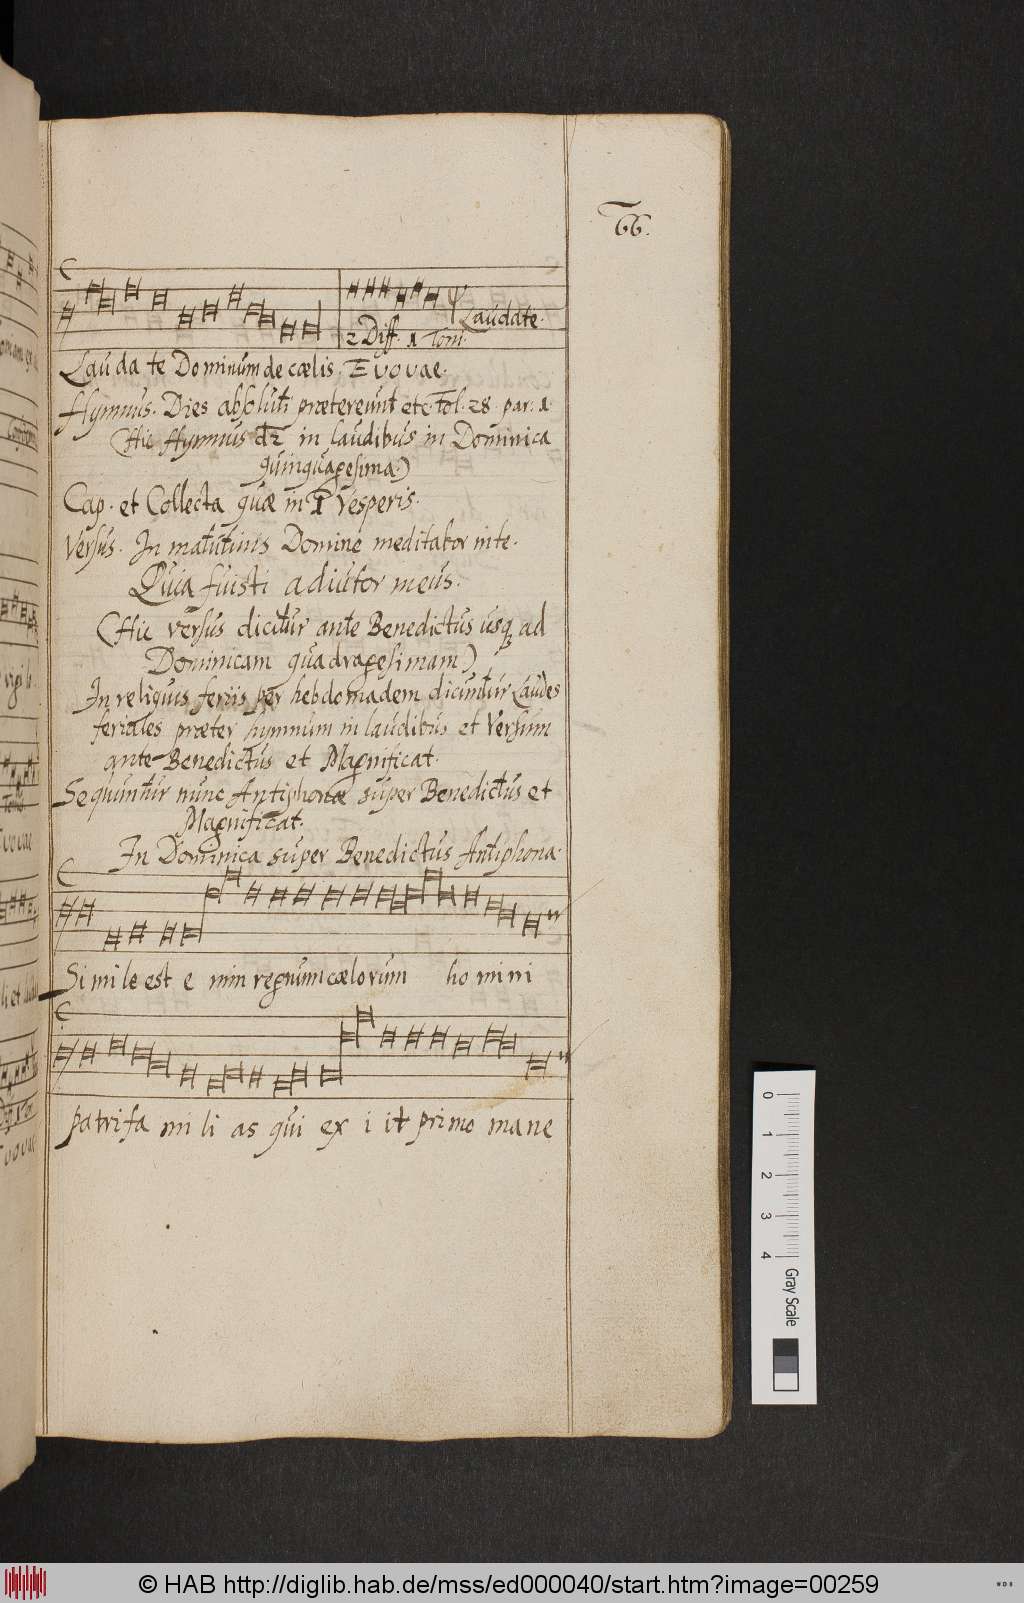 66.
ψ Laudate.
2 Diff. 1 Toni.
Lau da te Dominum de cælis. Evovae.
Hymnus. Dies absoluti prætereunt etc. fol. 28. par. 1.
(Hic Hymnus dr in laudibus in Dominica
quinquagesima.)
Cap. et Collecta quæ in 1 Vesperis.
Versus. In matutinis Domine meditabor in te.
Quia fuisti adiutor meus.
(Hic versus dicitur ante Benedictus usq ad
Dominicam quadragesimam)
In reliquis feriis per hebdomadem dicuntur Laudes
feriales præter hymnum in laudibus et Versum
ante Benedictus et Magnificat.
Sequuntur nunc Antiphonæ super Benedictus et
Magnificat.
In Dominica super Benedictus Antiphona.
Si mi le est e nim regnum cælorum ho mi ni
patri fa mi li as qui ex i it primo mane
0 1 2 3 4
Gray Scale
© HAB http://diglib.hab.de/mss/ed000040/start.htm?image=00259